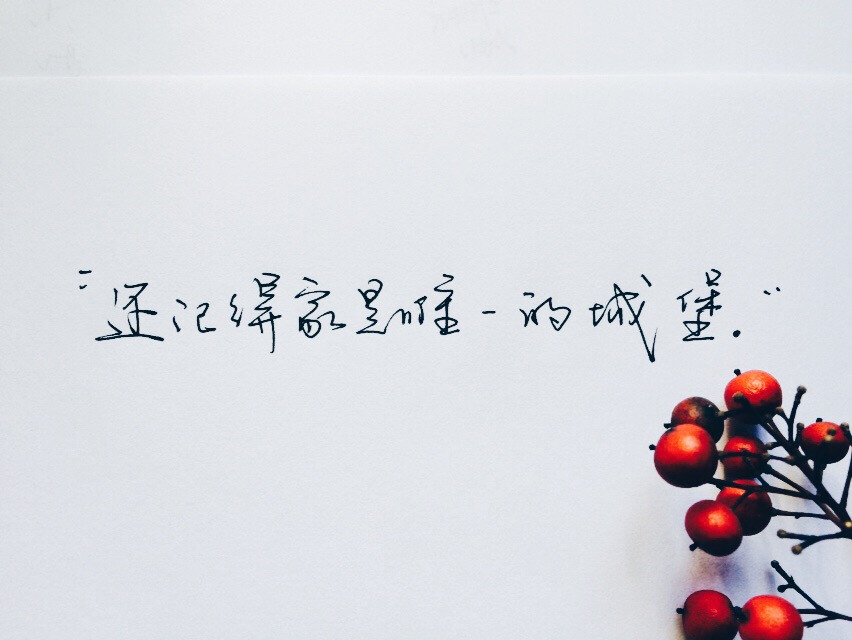 “还记得家是唯一的城堡.”